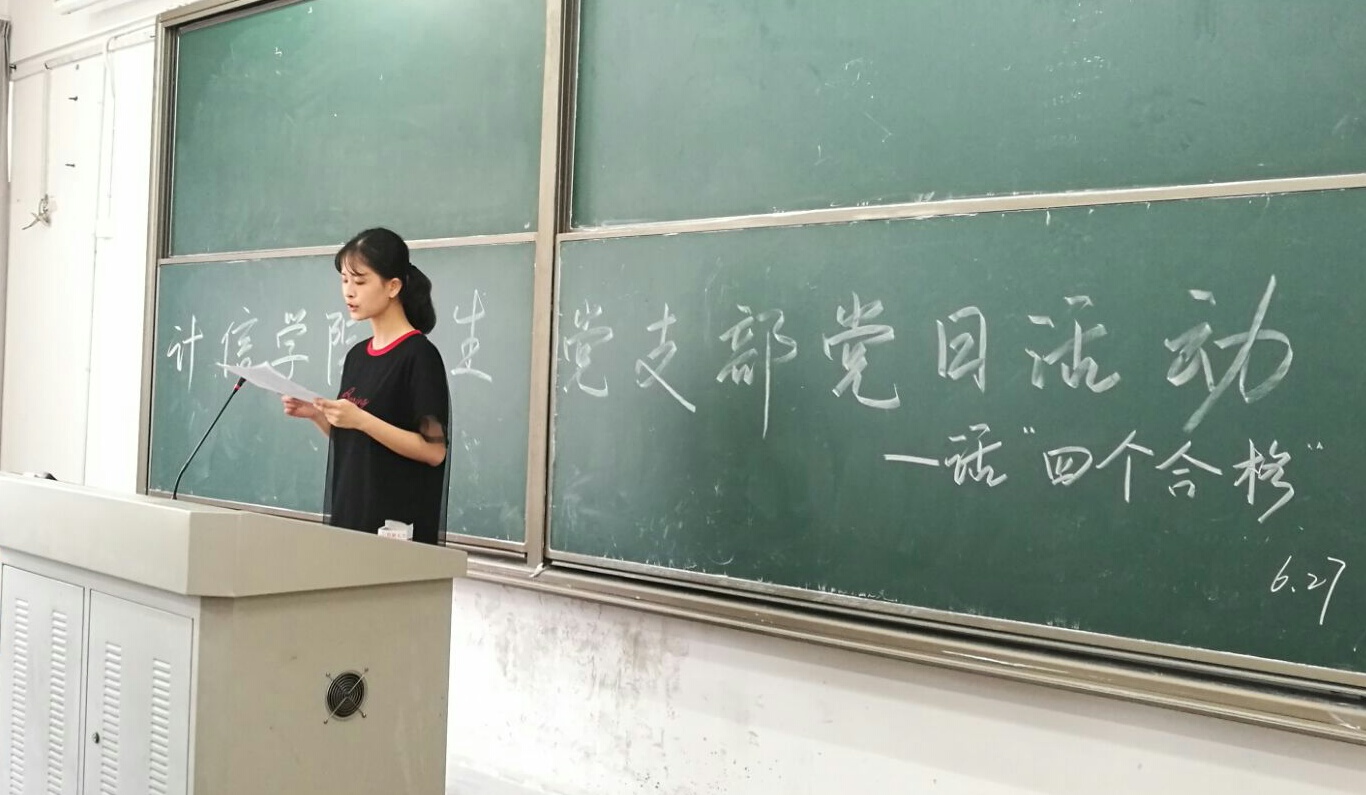 计信学院 生党支部党日活动
一话“四个合格”
6.27